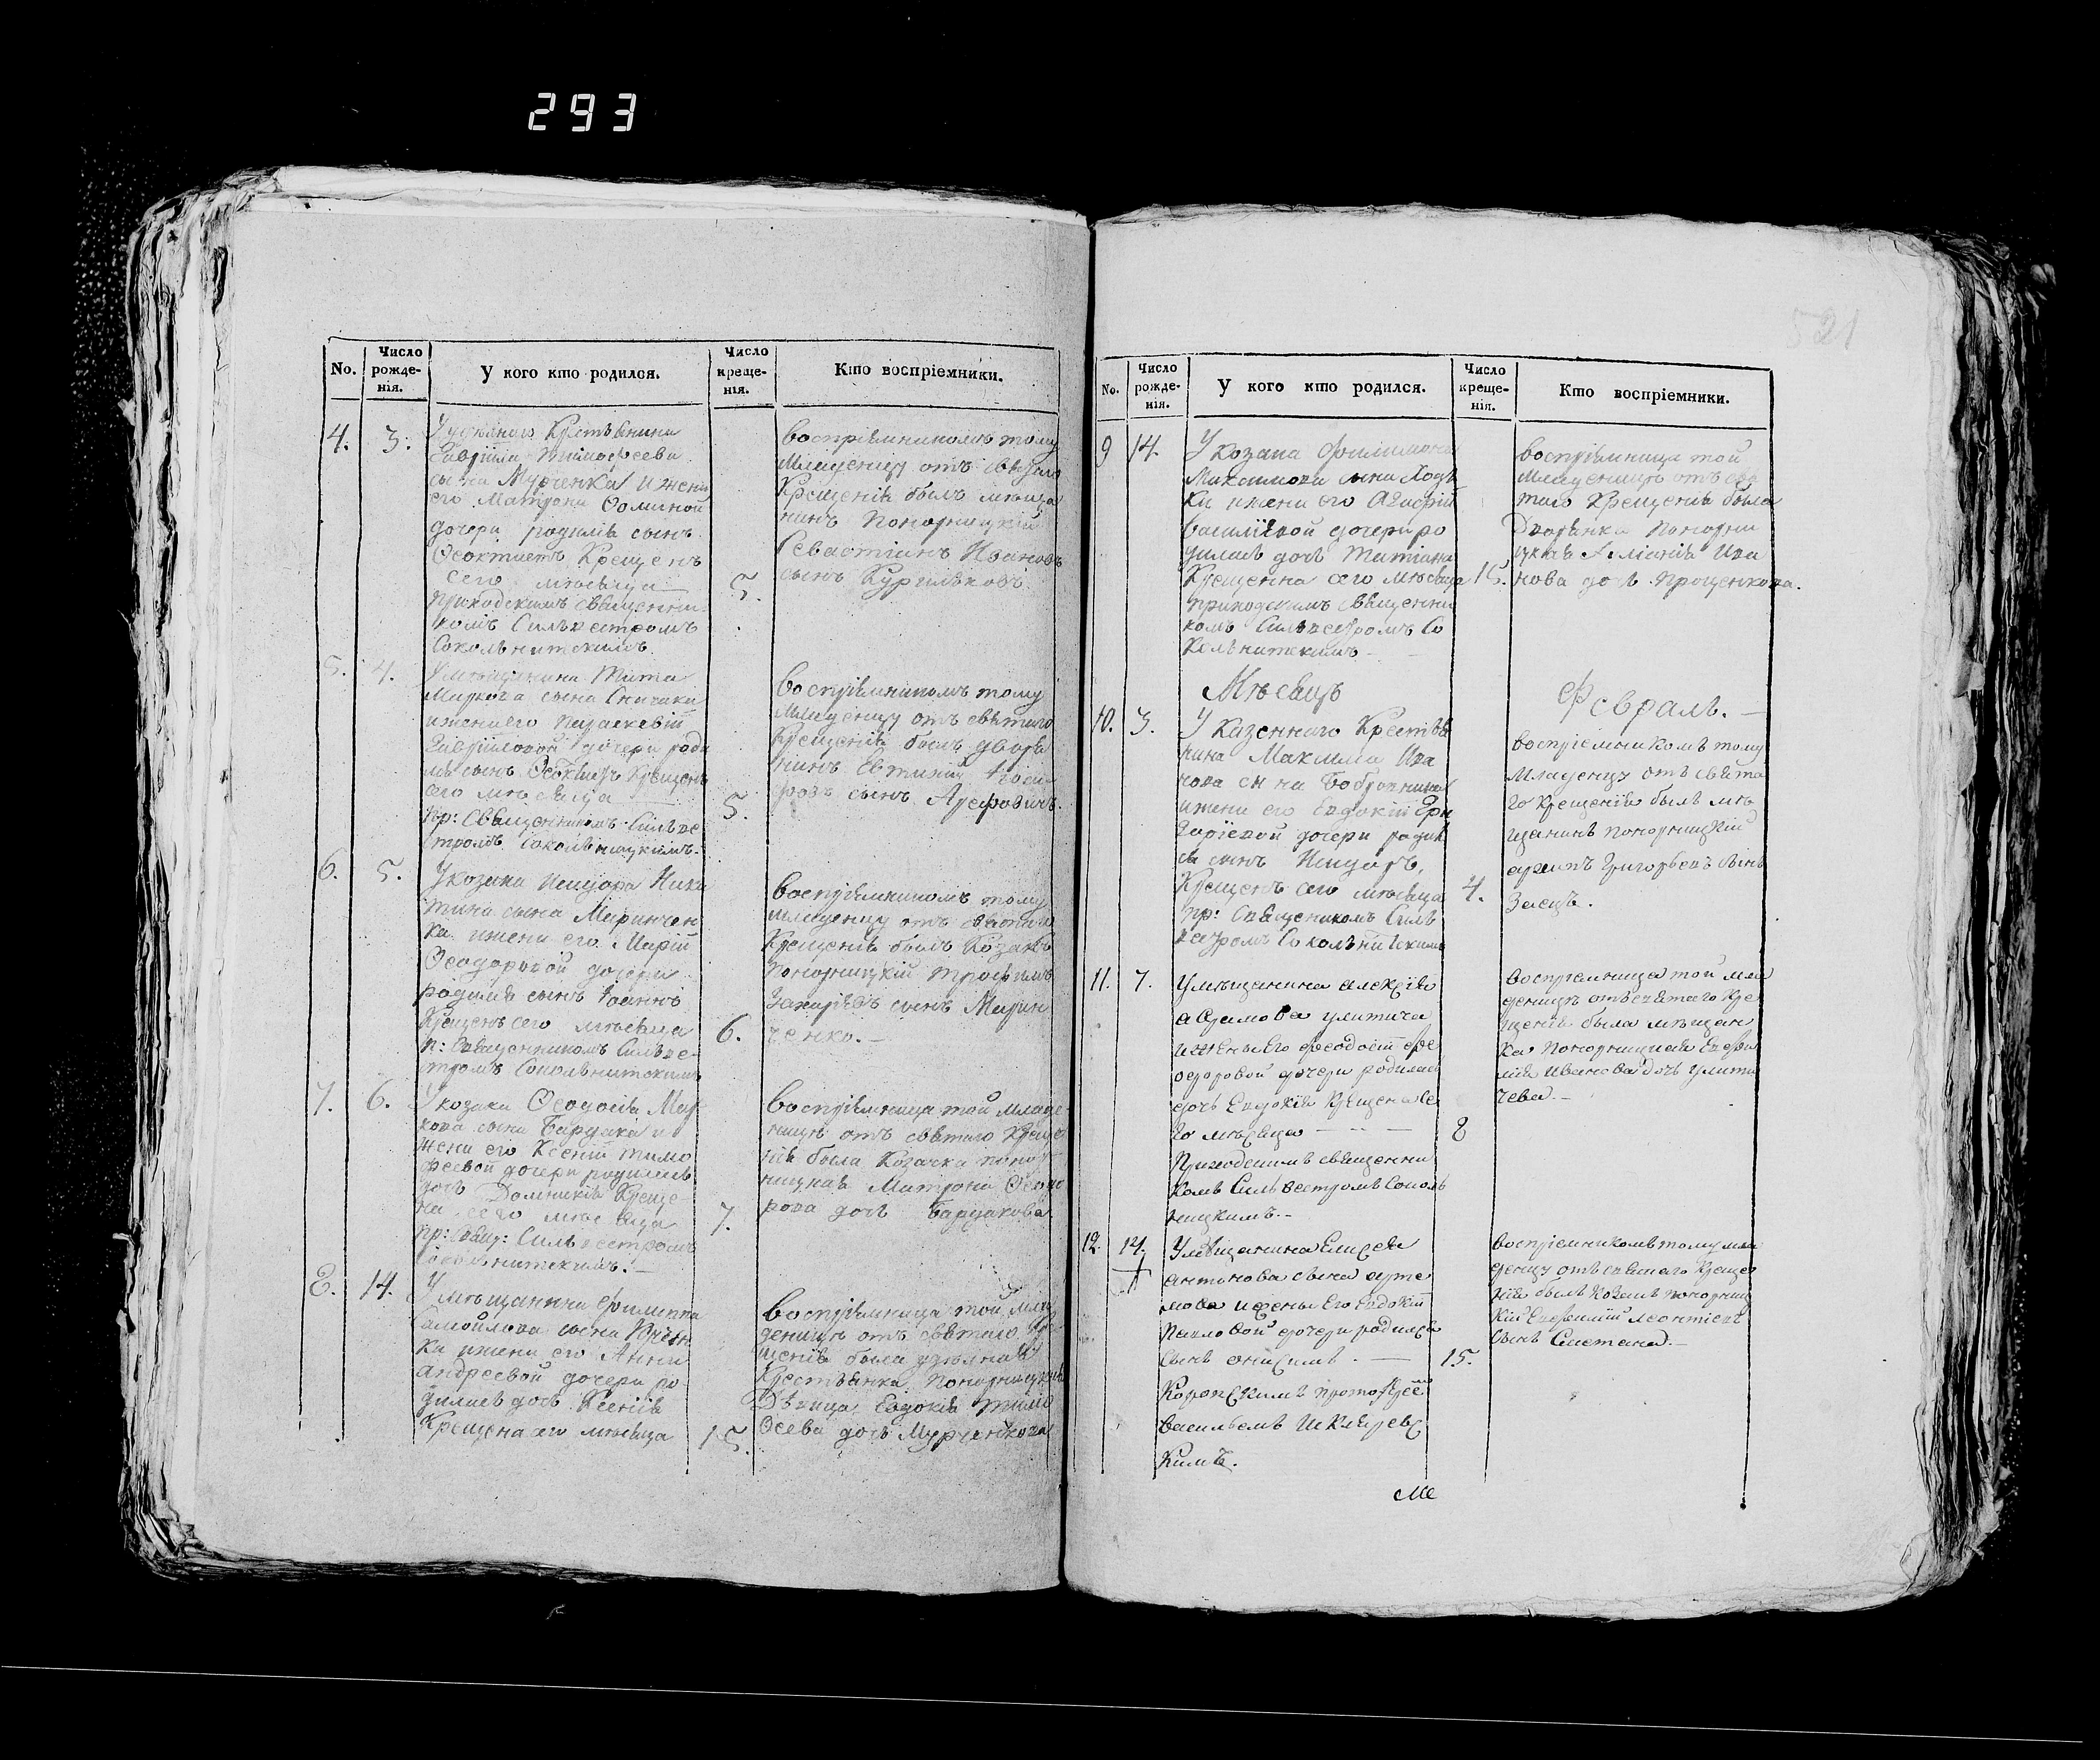 293
521
No.
Число рожде-нія.
У кого кто родился.
Число креще-нія.
Кто воспріемники.
4. 3.
Гавріила Тимофеева
сына Мурченка и жени
его Матрони Фоминой
дочери родился сынъ
Феоктистъ Крещенъ
сего мѣсяца
5.
приходскимъ священни
комъ Сильвестромъ
Сокольнитскимъ
воспріемникомъ тому
младенцу отъ святаго
Крещенія былъ мѣща
нинъ понорницкій
Севастіанъ Ивановъ
сынъ Курильковъ
5. 4.
У мѣщанина Тита
Маркова сына
и жени его Параскевіи
Гавриловой дочери роди
лся сынъ Крещенъ
сего мѣсяца
5.
пр: Священникомъ Сильве
стромъ Сокольницкимъ.
воспріемникомъ тому
младенцу отъ святаго
Крещенія былъ дворя
нинъ Евтихій
сынъ Арефовичъ.
6. 5.
У козака Исидора Ники
тина сына Маринчен
ка и жени его Маріи
Феодоровой дочери
родился сынъ Іоаннъ
Крещенъ сего мѣсяца
6.
п: Священникомъ Сильве-
стромъ Сокольнитскимъ
воспріемникомъ тому
младенцу отъ святаго
Крещенія былъ Козакъ
понорницкій Трофимъ
Захаріевъ сынъ Марин
ченко.—
7. 6.
У козака Феодосія Мар
кова сына Бардака и
жени его Ксеніи Тимо
феевой дочери родилась
дочь Домникія Креще
на сего мѣсяца
7.
пр: Свящ: Сильвестромъ
Сокольнитскимъ.—
воспріемница той младе
ницѣ отъ святаго Креще
нія была Козачка понор
ницкая Матрона Феодо
рова дочь Бардакова
8. 14.
У мѣщанина Филиппа
Самойлова сына
ки и жени его Анни
Андреевой дочери ро
дилась дочь Ксенія
Крещена сего мѣсяца
15.
воспріемница той мла
деницѣ отъ святаго Кре
щенія была удѣлная
Крестьянка понорницкая
Дѣвица Евдокія Тимо
феева дочь Мурченкова
No.
Число рожде-нія.
У кого кто родился.
Число креще-нія.
Кто воспріемники.
9 14.
У Козака Филимона
Максимова сына Ходь
ки и жени его Агафіи
Василіевой дочери ро
дилась дочь Татіана
Крещенна сего мѣсяца
15.
приходскимъ священни
комъ Сильвестромъ Со
кольнитскимъ—
воспріемница той
младеницѣ отъ свя
таго Крещенія была
Дворянка понорни
цкая Ива
нова дочь Проценкова.
Мѣсяцъ Февраль.—
10. 3.
У Казенного Крестья
нина Максима Ива
нова сина Бобровника
и жени его Евдокіи Гри
горіевой дочери родил
ся сынъ Исидоръ,
Крещенъ сего мѣсяца
4.
пр: Священикомъ Силь
вестромъ Сокольнитскимъ
воспріемникомъ тому
младенцу отъ свята
го крещенія былъ мѣ
щанинъ понорницкій
Григорьевъ сынъ
Заецъ.
11. 7.
У мѣщанина Алексія
Адамова Улитича
и жены его Феодосіи Фе
одоровой дочери родилась
дочь Евдокія Крещена се
го мѣсяца —
8
Приходскимъ священни
комъ Сильвестромъ Соколь
ницкимъ.—
воспріемница той мла
деницѣ отъ святаго Кре
щенія была мѣщан
ка понорницкая Евфи
мія Иванова дочь Улити
чева.—
12. 14.
У мѣщанина Елисея
Антонова сына Арте
мова и жены его Евдокіи
Павловой дочери родился
сынъ Онисимъ.—
15.
Коропскимъ протоіереи
Васильемъ
кимъ.
воспріемникомъ тому мла
денцу отъ святаго Креще
нія былъ Козакъ понорниц
кій Евфимій Леонтіевъ
сынъ Сметана.—
Ме